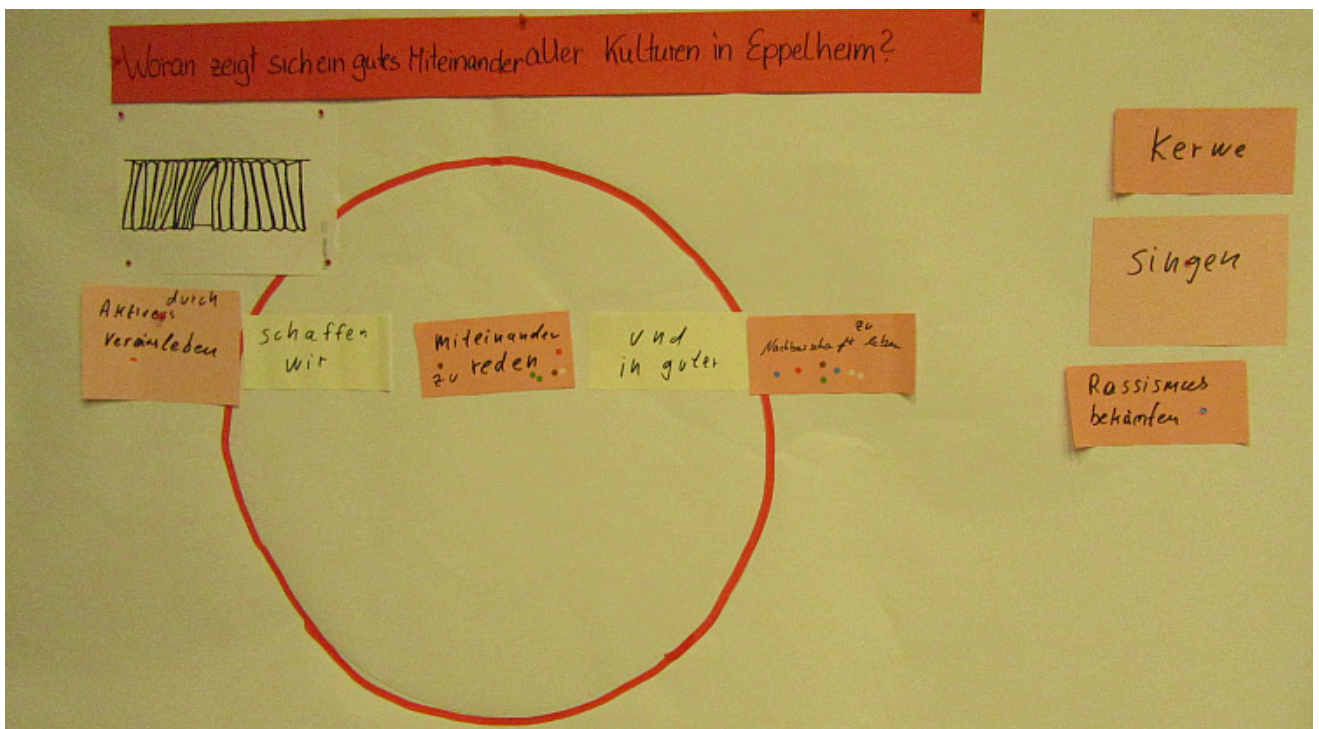 Woran zeigt sich ein gutes Miteinander aller Kulturen in Eppelheim?
durch
Aktives
vereinsleben
schaffen
wir
miteinander
zu reden
und
in guter
zu
Nachbarschaft leben
Kerwe
Singen
Rassismus
bekämfen